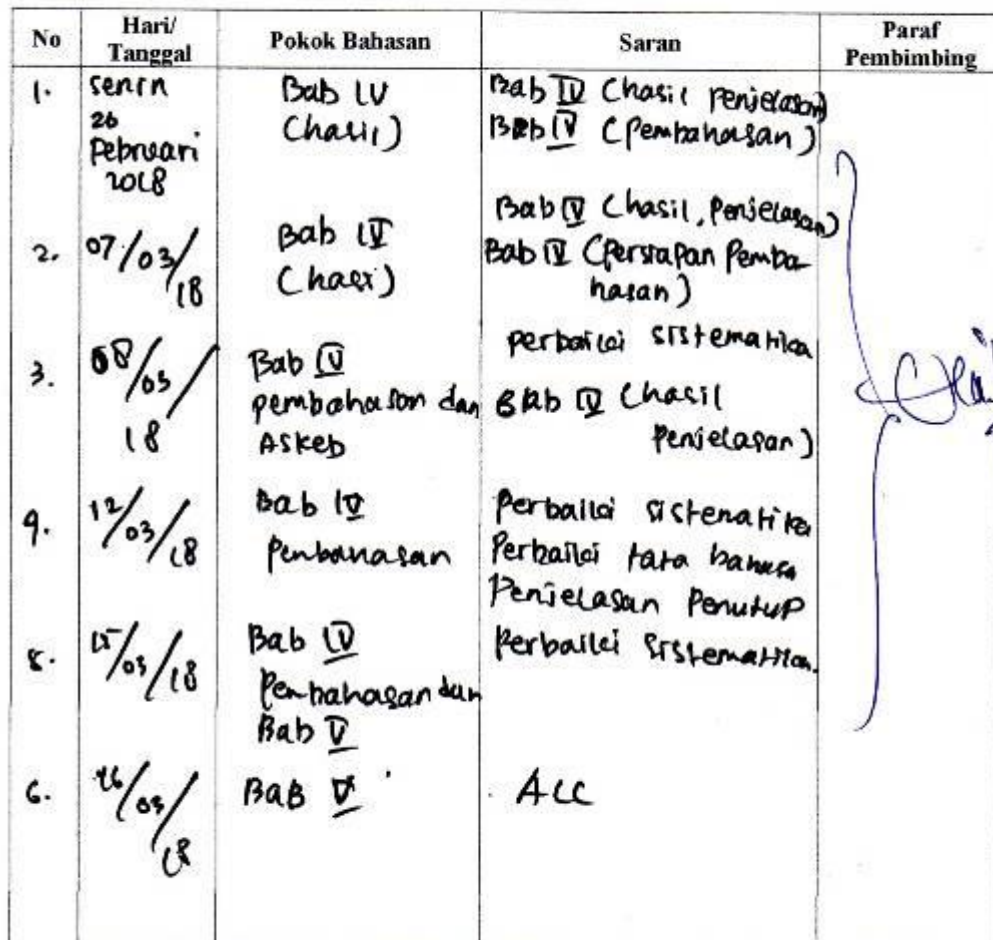 No Hari/ Tanggal Pokok Bahasan Saran Paraf Pembimbing
1. senin 26 Pebruari 2018
Bab IV
(hasil)
Bab IV (hasil penjelasan)
Bab IV (pembahasan)
2. 07/03/18
Bab IV
(hasil)
Bab IV (hasil, penjelasan)
Bab IV (persiapan pemba-
hasan)
3. 08/03/18
Bab IV
pembahasan dan
Askep
perbaiki sistematika
Bab IV (hasil
penjelasan)
4. 12/03/18
Bab IV
Pembahasan
Perbaiki sistematika
Perbaiki tata bahasa
Penjelasan Penutup
5. 15/03/18
Bab IV
Pembahasan dan
Bab V
Perbaiki sistematika.
6. /03/18
BAB V
ACC